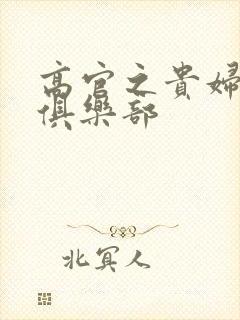 高官之貴婦
俱樂部
北冥人